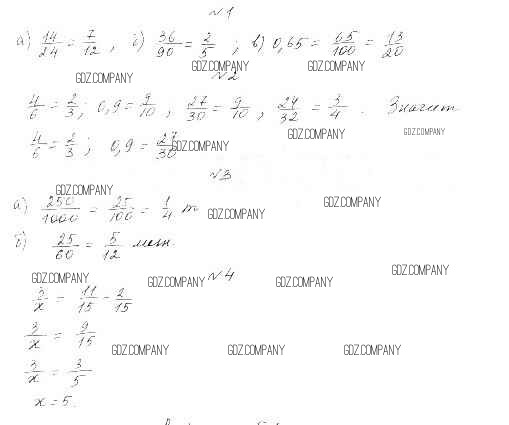 №1
а) 14/24 = 7/12 ; б) 36/90 = 2/5 ; в) 0,65 = 65/100 = 13/20
GDZ.COMPANY GDZ.COMPANY GDZ.COMPANY
№2
4/6 = 2/3 ; 0,9 = 9/10 , 27/30 = 9/10 , 24/32 = 3/4 . Значит
GDZ.COMPANY GDZ.COMPANY
4/6 = 2/3 ; 0,9 = 27/30
GDZ.COMPANY
№3
GDZ.COMPANY
а) 250/1000 = 25/100 = 1/4 т
GDZ.COMPANY GDZ.COMPANY
б) 25/60 = 5/12
GDZ.COMPANY GDZ.COMPANY №4 GDZ.COMPANY GDZ.COMPANY
3/x = 11/15 - 2/15
3/x = 9/15
GDZ.COMPANY GDZ.COMPANY GDZ.COMPANY
3/x = 3/5
x = 5.